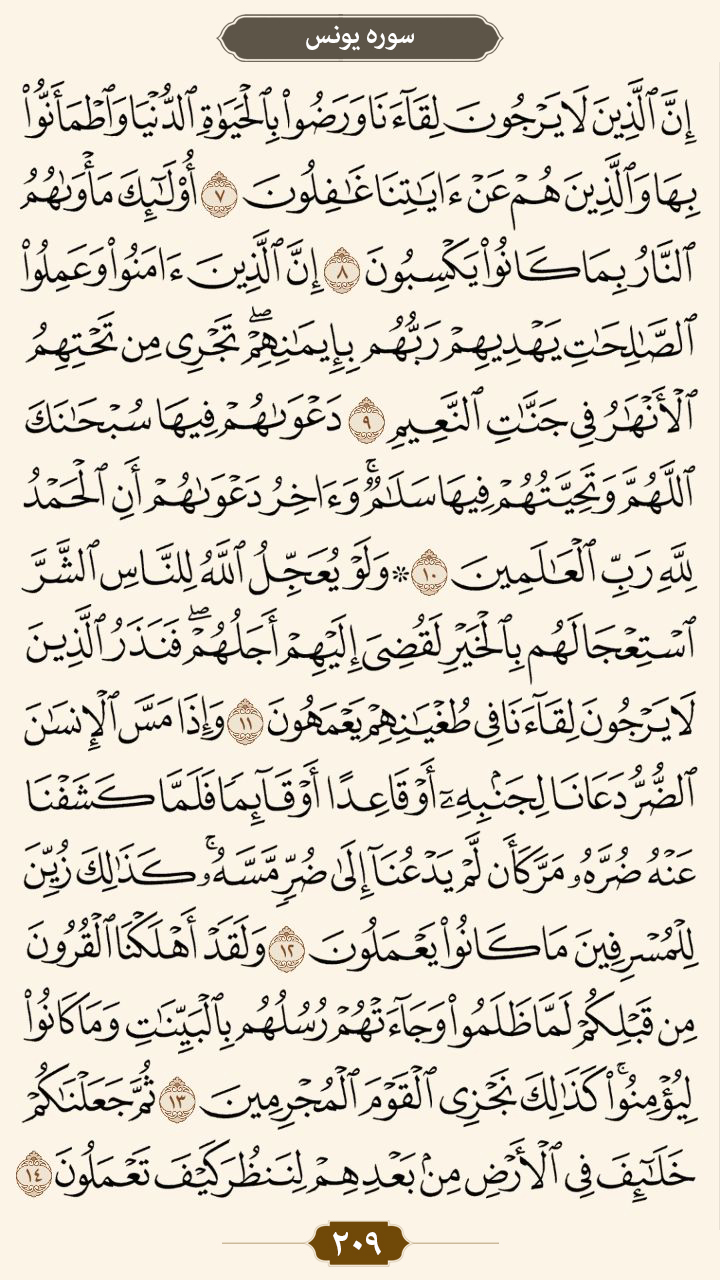 سوره یونس
إِنَّ ٱلَّذِينَ لَا يَرْجُونَ لِقَآءَنَا وَرَضُوا۟ بِٱلْحَيَوٰةِ ٱلدُّنْيَا وَٱطْمَأَنُّوا۟
بِهَا وَٱلَّذِينَ هُمْ عَنْ ءَايَـٰتِنَا غَـٰفِلُونَ ٧ أُو۟لَـٰٓئِكَ مَأْوَىٰهُمُ
ٱلنَّارُ بِمَا كَانُوا۟ يَكْسِبُونَ ٨ إِنَّ ٱلَّذِينَ ءَامَنُوا۟ وَعَمِلُوا۟
ٱلصَّـٰلِحَـٰتِ يَهْدِيهِمْ رَبُّهُم بِإِيمَـٰنِهِمْ ۖ تَجْرِى مِن تَحْتِهِمُ
ٱلْأَنْهَـٰرُ فِى جَنَّـٰتِ ٱلنَّعِيمِ ٩ دَعْوَىٰهُمْ فِيهَا سُبْحَـٰنَكَ
ٱللَّهُمَّ وَتَحِيَّتُهُمْ فِيهَا سَلَـٰمٌ ۚ وَءَاخِرُ دَعْوَىٰهُمْ أَنِ ٱلْحَمْدُ
لِلَّهِ رَبِّ ٱلْعَـٰلَمِينَ ١٠ ۞ وَلَوْ يُعَجِّلُ ٱللَّهُ لِلنَّاسِ ٱلشَّرَّ
ٱسْتِعْجَالَهُم بِٱلْخَيْرِ لَقُضِىَ إِلَيْهِمْ أَجَلُهُمْ ۖ فَنَذَرُ ٱلَّذِينَ
لَا يَرْجُونَ لِقَآءَنَا فِى طُغْيَـٰنِهِمْ يَعْمَهُونَ ١١ وَإِذَا مَسَّ ٱلْإِنسَـٰنَ
ٱلضُّرُّ دَعَانَا لِجَنۢبِهِۦٓ أَوْ قَاعِدًا أَوْ قَآئِمًا فَلَمَّا كَشَفْنَا
عَنْهُ ضُرَّهُۥ مَرَّ كَأَن لَّمْ يَدْعُنَآ إِلَىٰ ضُرٍّ مَّسَّهُۥ ۚ كَذَٰلِكَ زُيِّنَ
لِلْمُسْرِفِينَ مَا كَانُوا۟ يَعْمَلُونَ ١٢ وَلَقَدْ أَهْلَكْنَا ٱلْقُرُونَ
مِن قَبْلِكُمْ لَمَّا ظَلَمُوا۟ وَجَآءَتْهُمْ رُسُلُهُم بِٱلْبَيِّنَـٰتِ وَمَا كَانُوا۟
لِيُؤْمِنُوا۟ ۚ كَذَٰلِكَ نَجْزِى ٱلْقَوْمَ ٱلْمُجْرِمِينَ ١٣ ثُمَّ جَعَلْنَـٰكُمْ
خَلَـٰٓئِفَ فِى ٱلْأَرْضِ مِنۢ بَعْدِهِمْ لِنَنظُرَ كَيْفَ تَعْمَلُونَ ١٤
٢٠٩